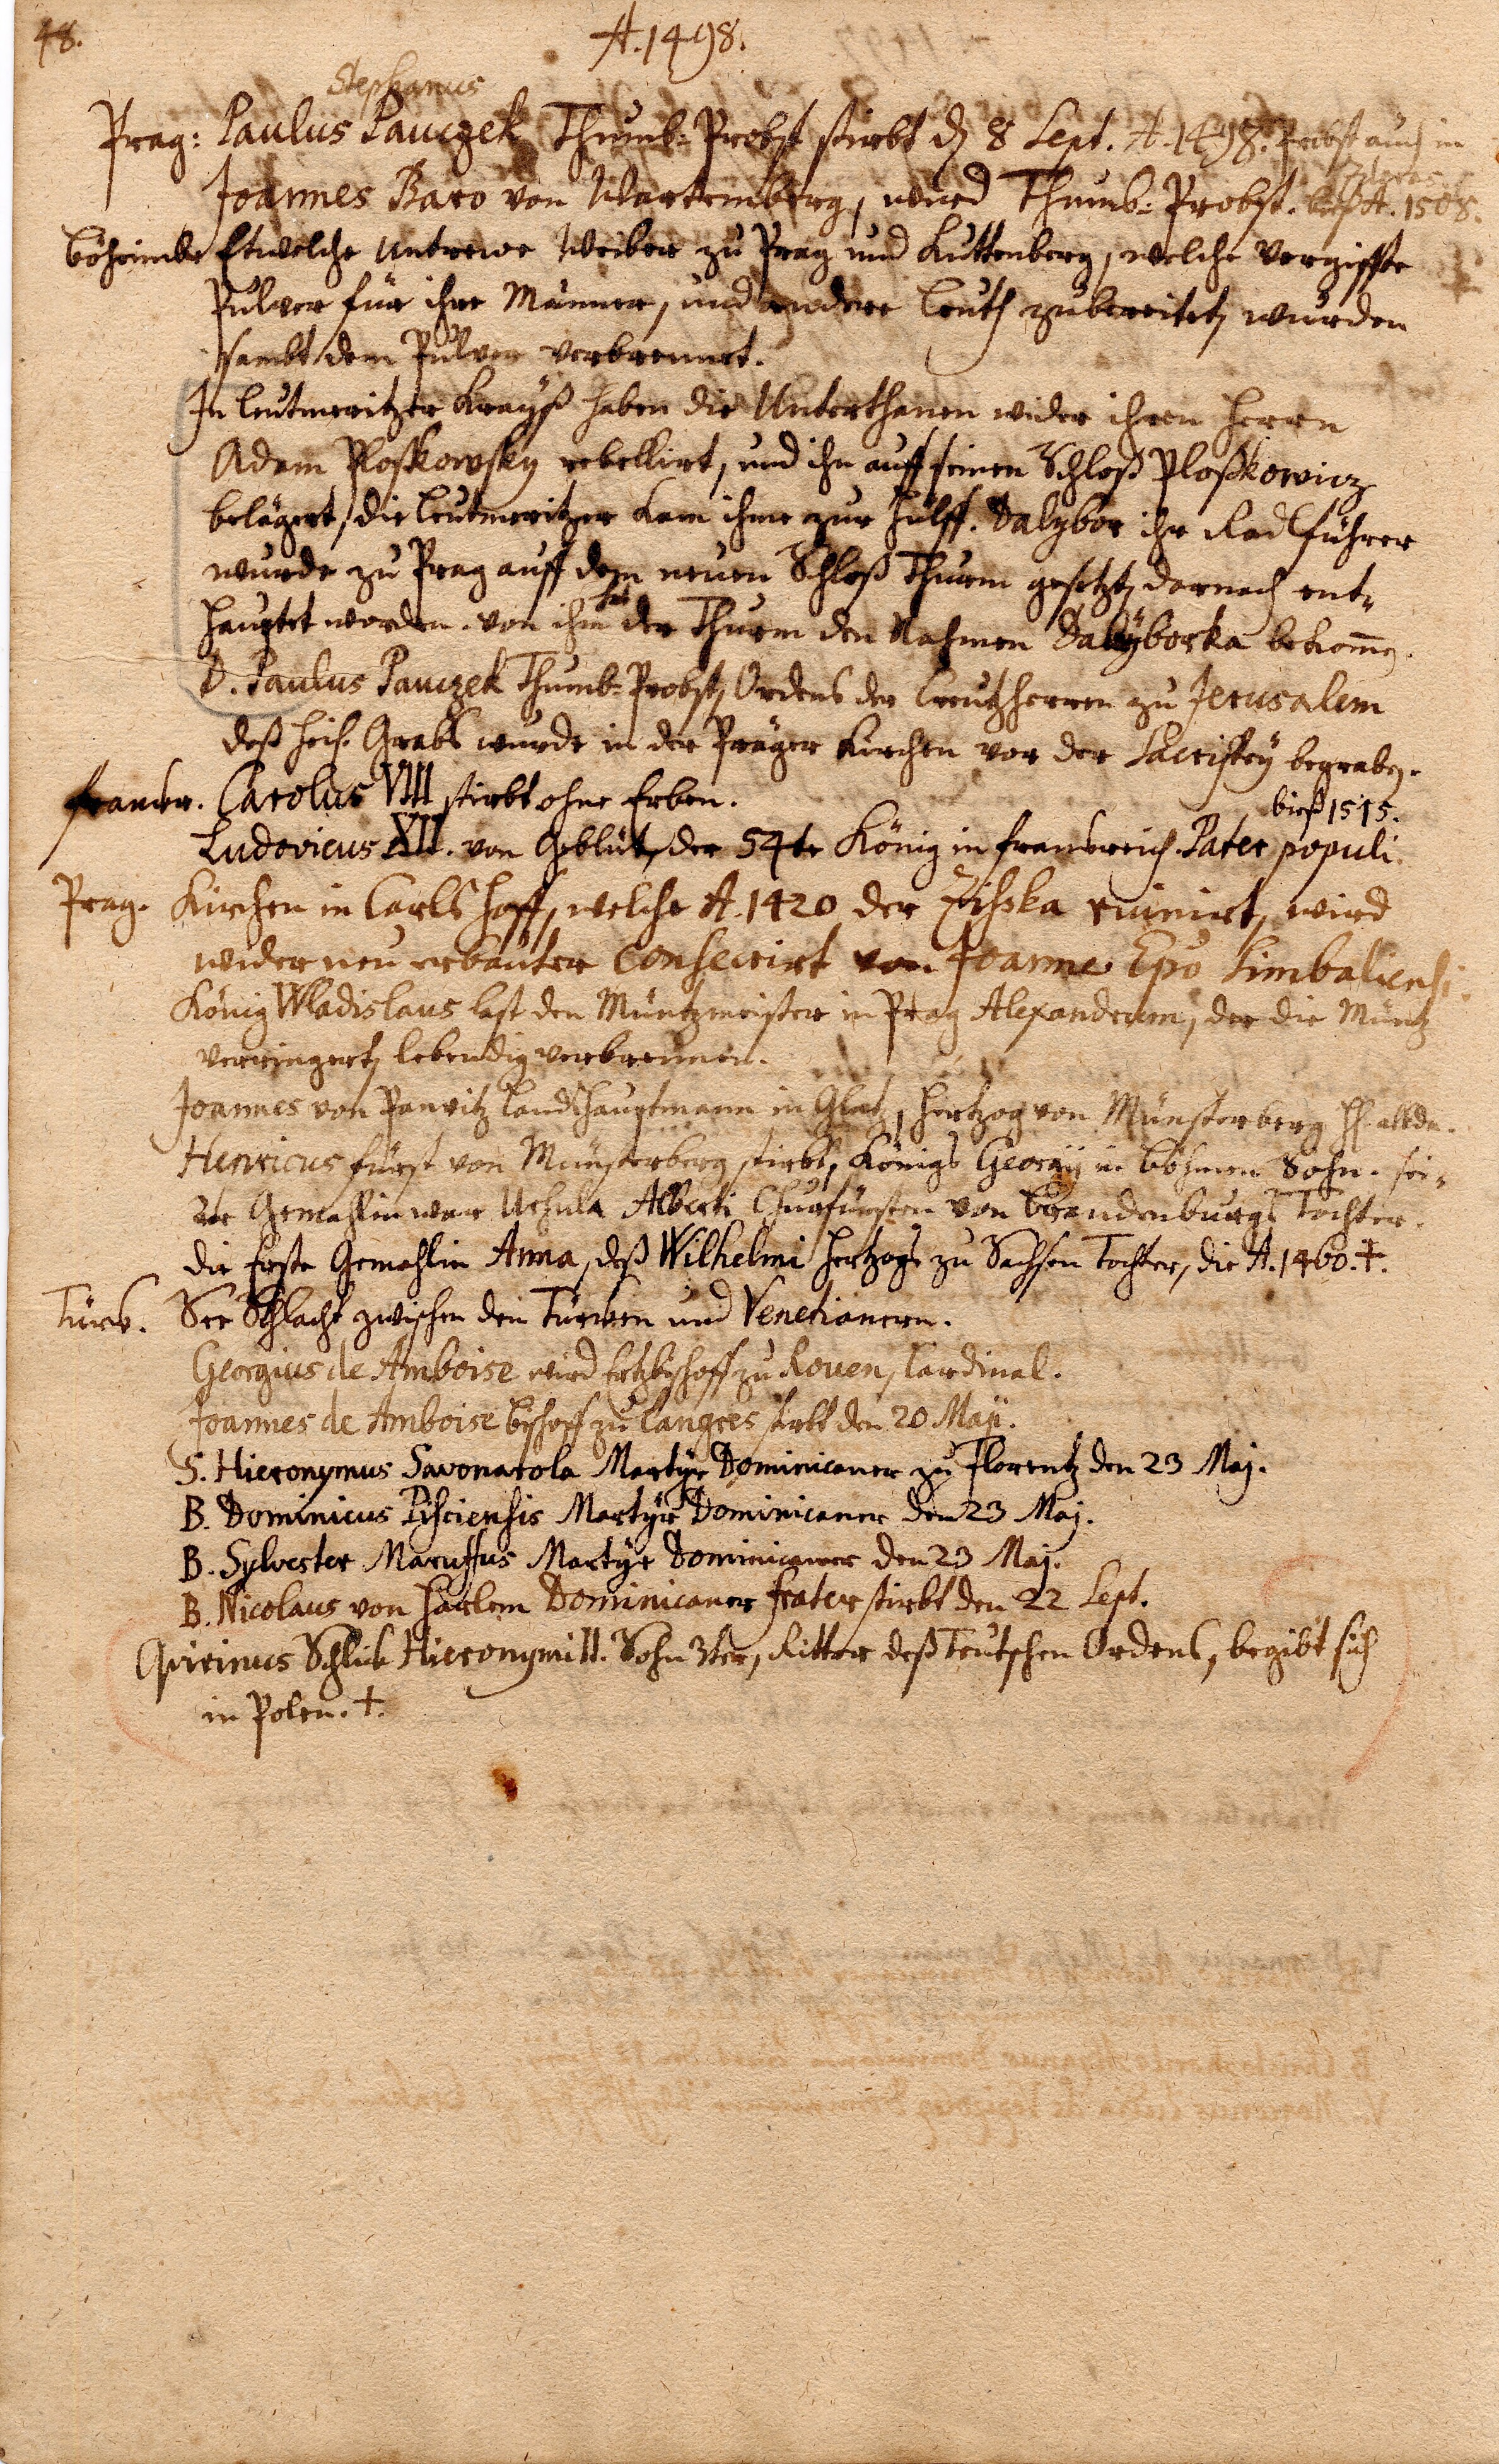 48.
A. 1498.
Stephanus
Prag: Paulus Pauczek Thumb-Probst stirbt d. 8 Sept. A. 1498. Probst auch in
Zderas
Joannes Baro von Wartemberg, wird Thumb-Probst. biß A. 1508.
Böheimbe Etwelche untrewe Weiber zu Prag und Kuttenberg, welche vergiffte
Pulver für ihre Männer, und andere Leuth zubereitet, wurden
sambt dem Pulver verbrennet.
In Leutmeritzer Krayß haben die Unterthanen wider ihren Herrn
Adam Ploskowsky rebellirt, und ihn auff seinen Schloß Ploßkowicz
belägert, die Leutmeritzer kam ihme zur Hülff. Dalybor ihr Radlführer
wurde zu Prag auff dem neuen Schloß Thurm gesetzt, darnach ent-
hauptet worden. von ihm hat der Thurm den Nahmen Dalyborka bekomen.
D. Paulus Pauczek Thumb-Probst, Ordens der Creutzherren zu Jerusalem
deß heil. Grabs wurde in der Präger Kirchen vor der Sacristey begraben.
Frankr. Carolus VIII stirbt ohne Erben.
biß 1515.
Ludovicus XII. von Geblüt, der 54te König in Frankreich. Pater populi.
Prag. Kirchen in Carls Hoff, welche A. 1420 der Zisska ruinirt, wird
wider neu erbauter consecrirt von Joanne Epo Simbaliensi.
König Wladislaus last den Müntzmeister in Prag Alexandrum, der die Müntz
verringert, lebendig verbrennen.
Joannes von Panvitz Landshauptmann in Glatz, Hertzog von Münsterberg
Henricus fürst von Münsterberg stirbt, Königs Georgij in Böhmen Sohn. sei-
ne Gemahlin war Urhula Alberti Churfürsten von Brandenburgs Tochter.
die Erste Gemahlin Anna, deß Wilhelmi Hertzogs zu Sachsen Tochter, die A. 1460. †.
Türk. See Schlacht zwischen den Türken und Venetianern.
Georgius de Amboise wird Ertzbischoff zu Rouen, Cardinal.
Joannes de Amboise Bischoff zu Langres stirbt den 20 Maji.
S. Hieronymus Savonarola Martyr Dominicaner zu Florentz den 23 Maj.
B. Dominicus Pisciensis Martyr Dominicaner den 23 Maj.
B. Sylvester Maruffus Martyr Dominicaner den 23 Maj.
B. Nicolaus von Harlem Dominicaner frater stirbt den 22 Sept.
Quirinus Schlik Hieronymi II. Sohn 3ter, Ritter deß Teutschen Ordens, begibt sich
in Polen. †.